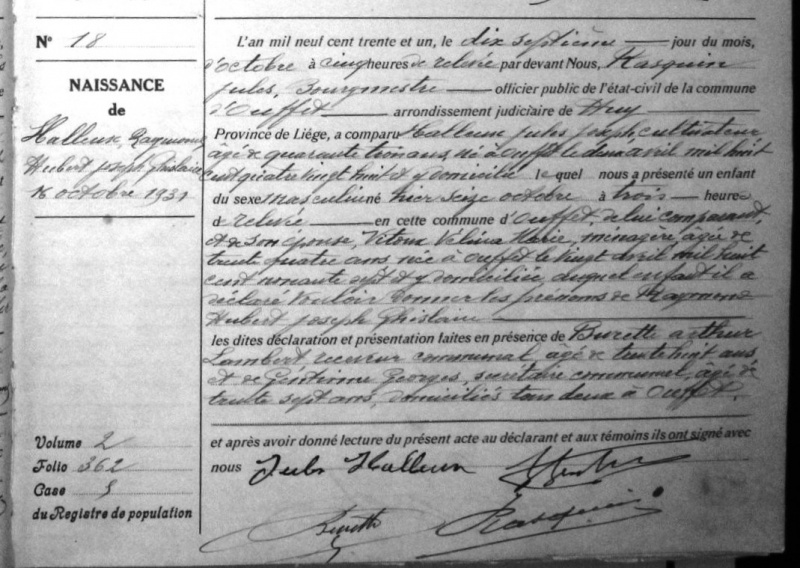 N° 18
NAISSANCE
de
Halleux, Raymond
Hubert Joseph Ghislain
16 octobre 1931
Volume 2
Folio 362
Case
du Registre de population
L'an mil neuf cent trente et un, le dix septième jour du mois,
d'octobre à cinq heures de relevée par devant Nous, Rasquin
Jules, Bourgmestre officier public de l'état-civil de la commune
d'Ouffet arrondissement judiciaire de Huy
Province de Liége, a comparu Halleux Jules Joseph, cultivateur
âgé de quarante trois ans, né à Ouffet le deux avril mil huit
cent quatre vingt huit et y domicilié le quel nous a présenté un enfant
du sexe masculin né hier seize octobre à trois heures
de relevée en cette commune d'Ouffet, de lui comparant,
et de son épouse, Marie, ménagère, âgée de
trente quatre ans née à Ouffet le vingt avril mil huit
cent nonante sept et y domiciliée, duquel enfant il a
déclaré vouloir donner les prénoms de Raymond
Hubert Joseph Ghislain
les dites déclaration et présentation faites en présence de Burette Arthur
Lambert receveur communal, âgé de trente huit ans,
et de Georges, secrétaire communal, âgé de
trente sept ans, domiciliés tous deux à Ouffet.
et après avoir donné lecture du présent acte au déclarant et aux témoins ils ont signé avec
nous Jules Halleux
Burette Rasquin